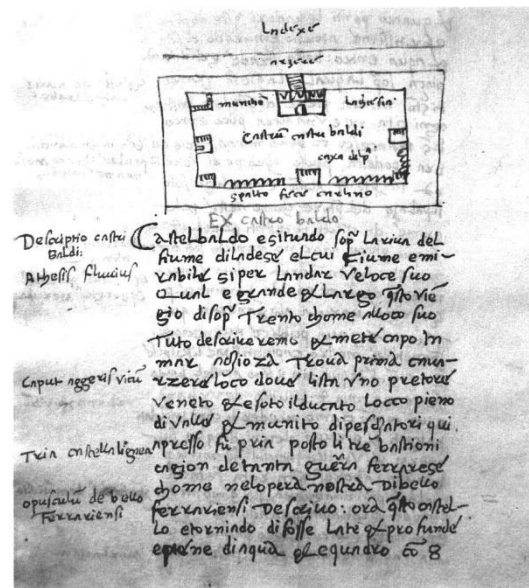 Ladexe
argere
muncho
Castrũ castri baldi
casa dil p
spalto fece
EX castro baldo
Descriptio castri
Baldi:
Athesis fluuius
Caput aggeris vici
Tria castella lignea
opusculũ de bello
Ferrariensi
CAstelbaldo e situado sop̃ La riua del
fiume di Ladese el cui fiume e mi-
rabile si per Landar veloce suo
Qual e grande & Largo q̃sto vie
gio di sop̃ Trento chome al loco suo
Tuto descriueremo & mete capo In
mar Trouã prima
loco doue lista vno pretore
veneto & e soto il ducato Locco pieno
di valle & munito di pescatori qui
apresso fu pria posto li tre bastioni
cagion de tanta guerra ferrarese
chome nel opera nostra di bello
ferrariensi Descriuo: ora q̃sto castel-
lo e tornindo di fosse Late & profunde
e piene di aqua & e quadro cõ 8